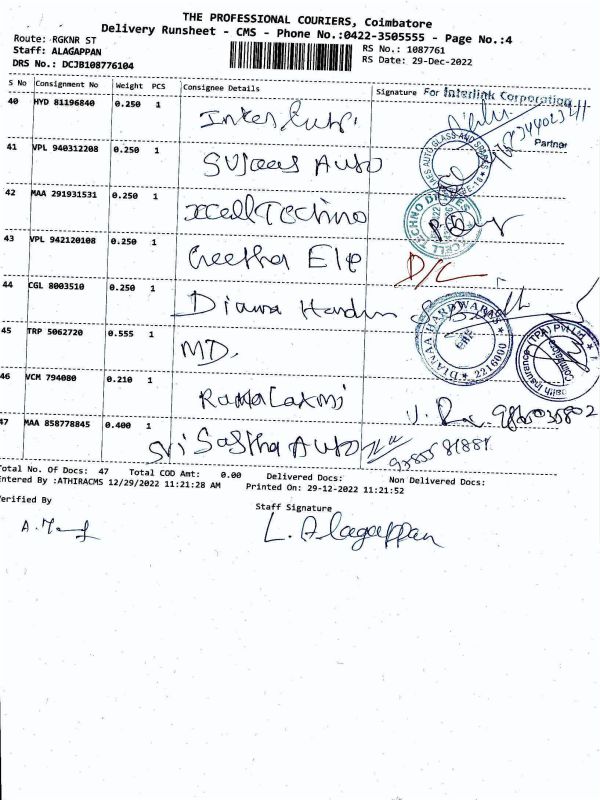 THE PROFESSIONAL COURIERS, Coimbatore
Delivery Runsheet - CMS - Phone No.:0422-3505555 - Page No.:4
Route: RGKNR ST
Staff: ALAGAPPAN
DRS No.: DCJB108776104
RS No.: 1087761
RS Date: 29-Dec-2022
S No Consignment No Weight PCS Consignee Details Signature For Interlink Corporation
40 HYD 81196840 0.250 1
Partner
41 VPL 940312208 0.250 1 Auto
42 MAA 291931531 0.250 1 xcell Techno
43 VPL 942120108 0.250 1 Geetha Ele D/C
44 CGL 8003510 0.250 1 Diana
DIANAA HARDWARES 2216000
45 TRP 5062720 0.555 1 MD.
46 VCM 794080 0.210 1 Ramalaxmi
47 MAA 858778845 0.400 1 Sri Sastha Auto
Total No. Of Docs: 47 Total COD Amt: 0.00 Delivered Docs: Non Delivered Docs:
Entered By :ATHIRACMS 12/29/2022 11:21:28 AM Printed On: 29-12-2022 11:21:52
Verified By
Staff Signature
L. Alagappan